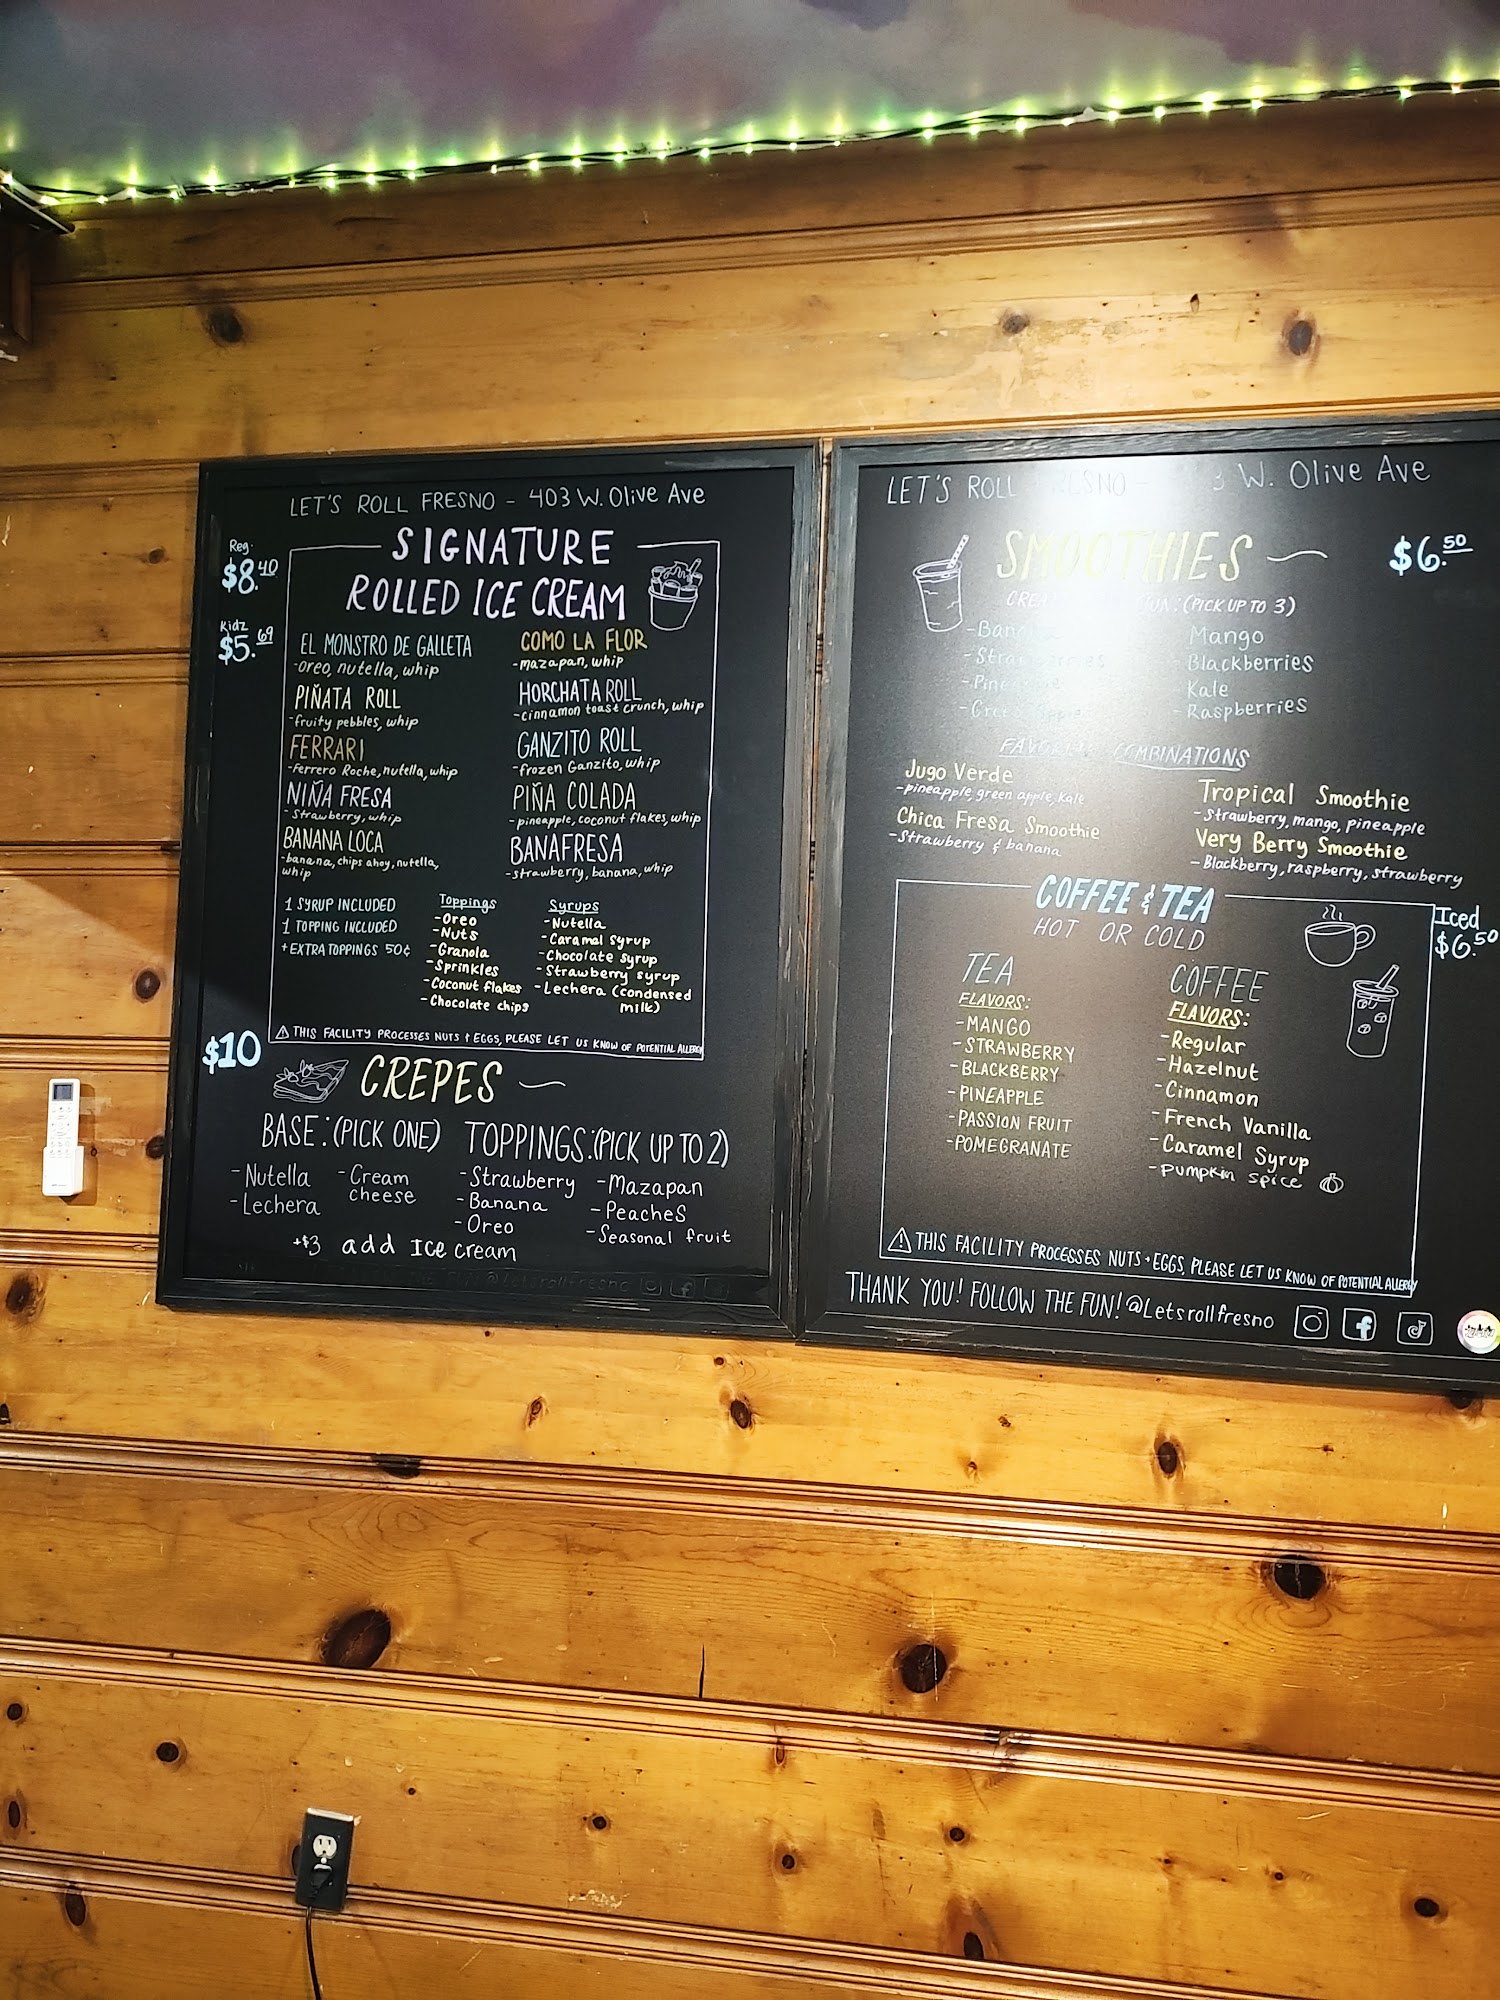 LET'S ROLL FRESNO - 403 W. Olive Ave
Reg.
$8.40
Kidz
$5.69
SIGNATURE
ROLLED ICE CREAM
EL MONSTRO DE GALLETA
-oreo, nutella, whip
PIÑATA ROLL
-fruity pebbles, whip
FERRARI
-Ferrero Roche, nutella, whip
NIÑA FRESA
-Strawberry, whip
BANANA LOCA
-banana, chips ahoy, nutella,
whip
COMO LA FLOR
-mazapan, whip
HORCHATA ROLL
-cinnamon toast crunch, whip
GANZITO ROLL
-frozen Ganzito, whip
PIÑA COLADA
-pineapple, coconut flakes, whip
BANAFRESA
-strawberry, banana, whip
1 SYRUP INCLUDED
1 TOPPING INCLUDED
+EXTRA TOPPINGS 50¢
Toppings
-Oreo
-Nuts
-Granola
-Sprinkles
-Coconut flakes
-Chocolate chips
Syrups
-Nutella
-Caramel syrup
-Chocolate syrup
-Strawberry syrup
-Lechera (condensed
milk)
⚠ THIS FACILITY PROCESSES NUTS + EGGS, PLEASE LET US KNOW OF POTENTIAL ALLERGY
$10
CREPES
BASE:(PICK ONE)
-Nutella
-Lechera
-Cream
cheese
TOPPINGS:(PICK UP TO 2)
-Strawberry
-Banana
-Oreo
-Mazapan
-Peaches
-Seasonal fruit
+$3 add Ice cream
@Letsrollfresno
LET'S ROLL W. Olive Ave
SMOOTHIES
$6.50
(PICK UP TO 3)
-Strawberries
Mango
-Blackberries
-Kale
-Raspberries
COMBINATIONS
Jugo Verde
-pineapple, green apple, kale
Chica Fresa Smoothie
-Strawberry & banana
Tropical Smoothie
-Strawberry, mango, pineapple
Very Berry Smoothie
-Blackberry, raspberry, strawberry
COFFEE & TEA
HOT OR COLD
Iced
$6.50
TEA
FLAVORS:
-MANGO
-STRAWBERRY
-BLACKBERRY
-PINEAPPLE
-PASSION FRUIT
-POMEGRANATE
COFFEE
FLAVORS:
-Regular
-Hazelnut
-Cinnamon
-French Vanilla
-Caramel Syrup
-Pumpkin spice
⚠ THIS FACILITY PROCESSES NUTS + EGGS, PLEASE LET US KNOW OF POTENTIAL ALLERGY
THANK YOU! FOLLOW THE FUN! @Letsrollfresno